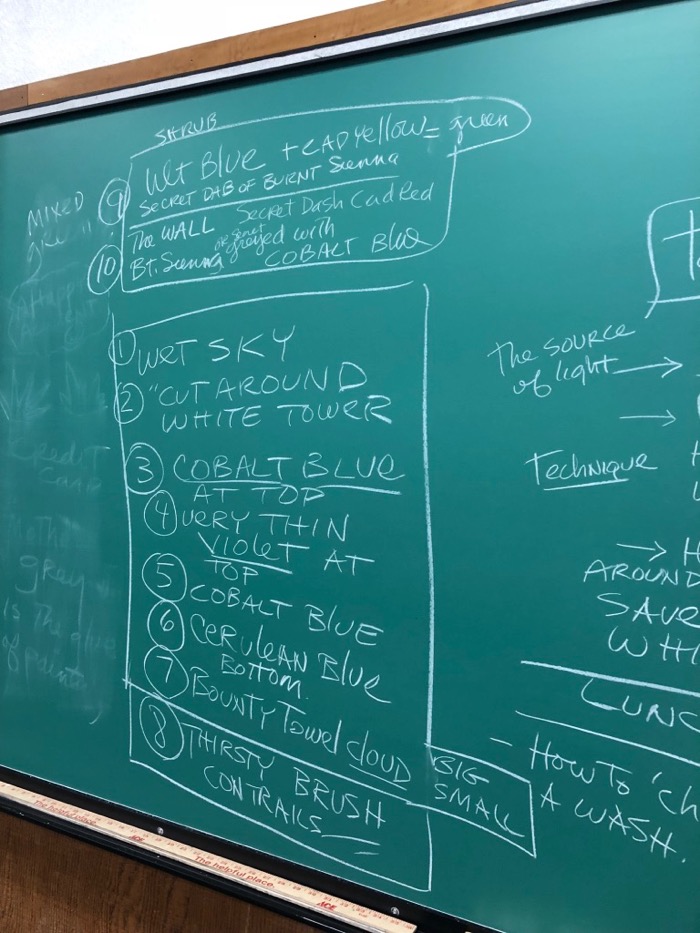 SHRUB
⑨ Ult Blue + CAD Yellow = green
SECRET DAB OF BURNT Sienna
The WALL Secret Dash Cad Red
greyed with
⑩ Bt. Sienna COBALT Blue
MIXED
① WET SKY
② "CUT AROUND
WHITE TOWER
③ COBALT BLUE
AT TOP
④ VERY THIN
VIOLET AT
TOP
⑤ COBALT BLUE
⑥ CERULEAN Blue
BOTTOM.
⑦ BOUNTY Towel cloud
⑧ THIRSTY BRUSH
CONTRAILS
BIG
SMALL
The source
of light →
→
Technique
→ H
AROUND
SAVE
WHI
LUNC
- HOW TO 'Ch
A WASH.
Credit
grey
is the glue
of paints
The helpful place.
ACE
The helpful place.
ACE